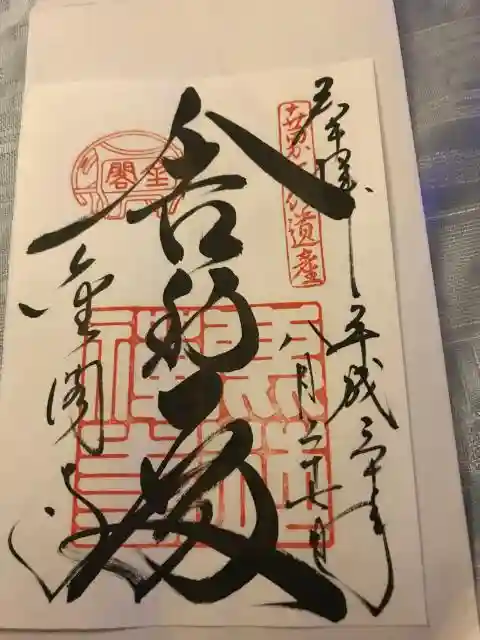 奉拝
平成三十年
八月二十七日
世界文化遺産
舎利殿
金閣
鹿苑
禅寺
金閣寺